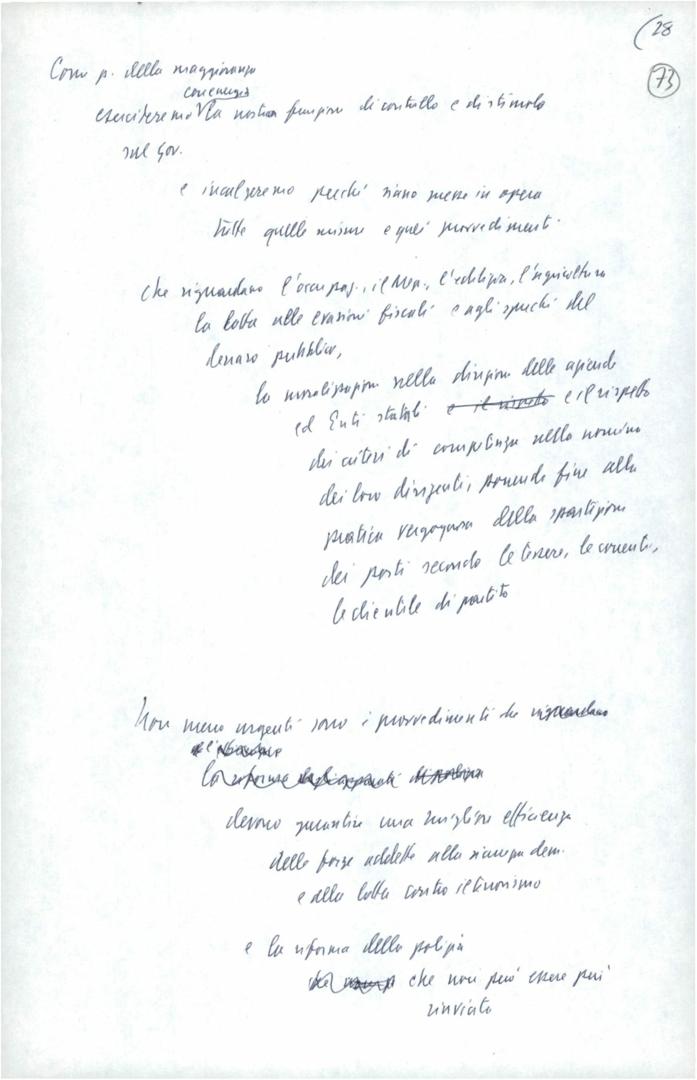 (28
73
Come p. della maggioranza
con energia
eserciteremo la nostra funzione di controllo e di stimolo
sul Gov.
e incalzeremo perché siano messe in opera
tutte quelle misure e quei provvedimenti
che riguardano l'occupaz., il Mezz., l'edilizia, l'agricoltura
la lotta alle evasioni fiscali e agli sprechi del
denaro pubblico,
la moralizzazione nella direzione delle aziende
ed Enti statali e il rispetto e il rispetto
dei criteri di competenza nella nomina
dei loro dirigenti, ponendo fine alla
pratica vergognosa della spartizione
dei posti secondo le tessere, le correnti,
le clientele di partito
Non meno urgenti sono i provvedimenti che riguardano
la riforma degli apparati di polizia
devono garantire una migliore efficienza
delle forze addette alla sicurezza dem.
e alla lotta contro il terrorismo
e la riforma della polizia
che non può essere più
rinviata